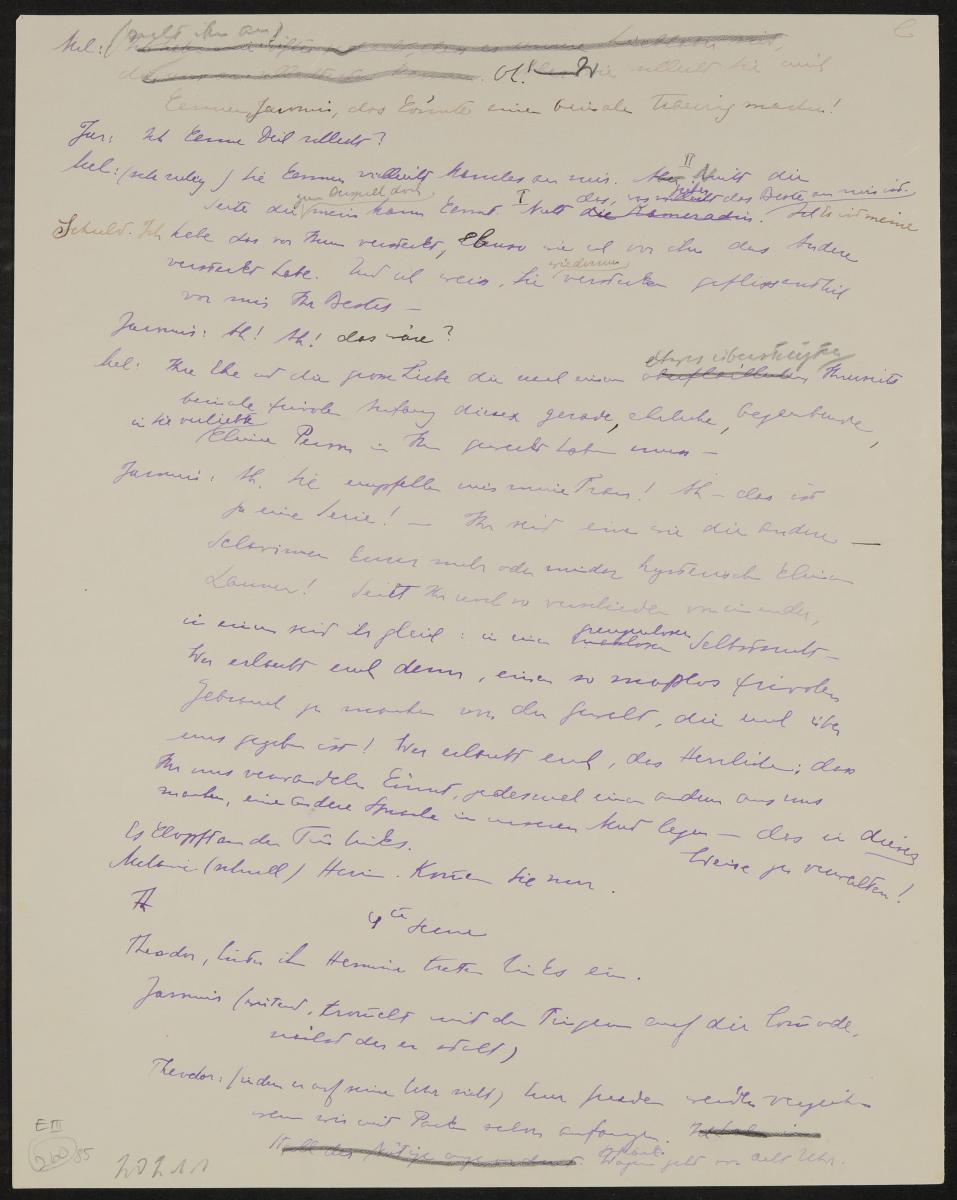 Mel: (sieht ihn an)
Oh! wie schlecht Sie mich
kennen, Jaromir, das könnte einen beinahe traurig machen!
Jar: Ich kenne Dich schlecht?
Mel: (sehr ruhig) Sie kennen vielleicht manches an mir. II Nicht die
Seite die mein Mann kennt. I Nicht das, was das Beste an mir ist. Es ist meine
Schuld. Ich habe das vor Ihnen versteckt, ebenso wie ich vor ihm das Andere
versteckt habe. Und ich weiss, Sie wiederum verstecken geflissentlich
vor mir Ihr Bestes –
Jaromir: Ah! Ah! das wäre?
Mel: Ihre Ehe und die grosse Liebe die nach einem Ihrerseits
beinahe frivolen Anfang diese gerade, ehrliche, begeisternde,
in Sie verliebte
kleine Person in Ihnen geweckt haben muss –
Jaromir: Ah, Sie empfehlen mir meine Frau! Ah – das ist
ja eine Serie! – Ihr seid eine wie die andere –
Sclavinnen Eurer mehr oder minder hysterischen kleinen
Launen! Seid Ihr noch so verschieden von einander,
in einem seid Ihr gleich: in einer grenzenlosen Selbstsucht –
Wer erlaubt euch denn, einen so maßlos frivolen
Gebrauch zu machen von der Gewalt, die euch über
uns gegeben ist! Wer erlaubt euch, das Herrliche: dass
Ihr uns verwandeln könnt, jedesmal einen andern aus uns
machen, eine andere Sprache in unseren Mund legen – das in dieser
Weise zu verwalten!
Es klopft an der Tür links.
Melanie (schnell) Herein. Kommen Sie nur.
4te Scene
Theodor, hinter ihm Hermine treten links ein.
Jaromir (wütend, trommelt mit den Fingern auf die Comode,
nächst der er steht)
Theodor: (indem er auf seine Uhr sieht) Euer Gnaden werden verzeihen
wenn wir mit Packen schon anfangen.
Wagen geht vor acht Uhr.
E III
260 85
20211